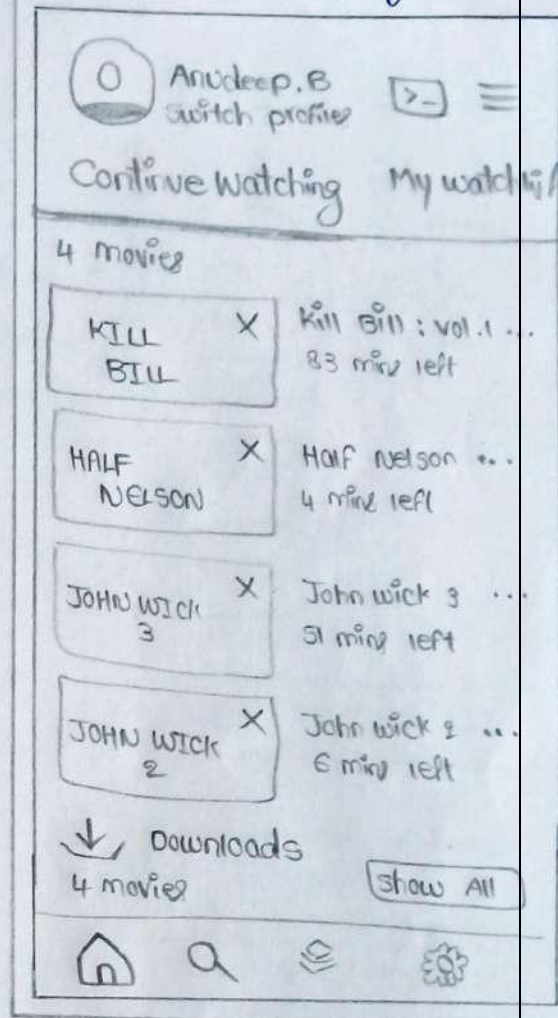 Anudeep.B
switch profiles
Continue watching My watchlis
4 movies
KILL
BILL
X
Kill Bill : vol.1 ...
83 mins left
HALF
NELSON
X
Half Nelson ...
4 mins left
JOHN WICK
3
X
John wick 3 ...
51 mins left
JOHN WICK
2
X
John wick 2 ...
6 mins left
Downloads
4 movies
Show All